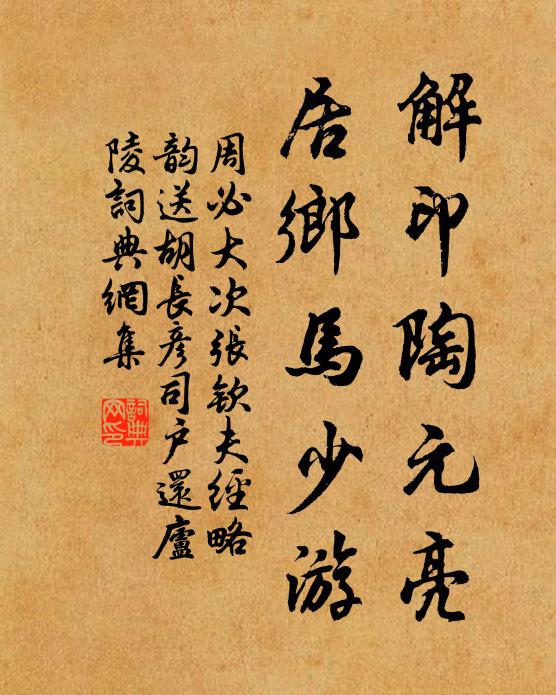 解印陶元亮
居鄉馬少游
周必大次張欽夫經略
韵送胡長彥司戶還廬
陵詞典網集
詞典網印